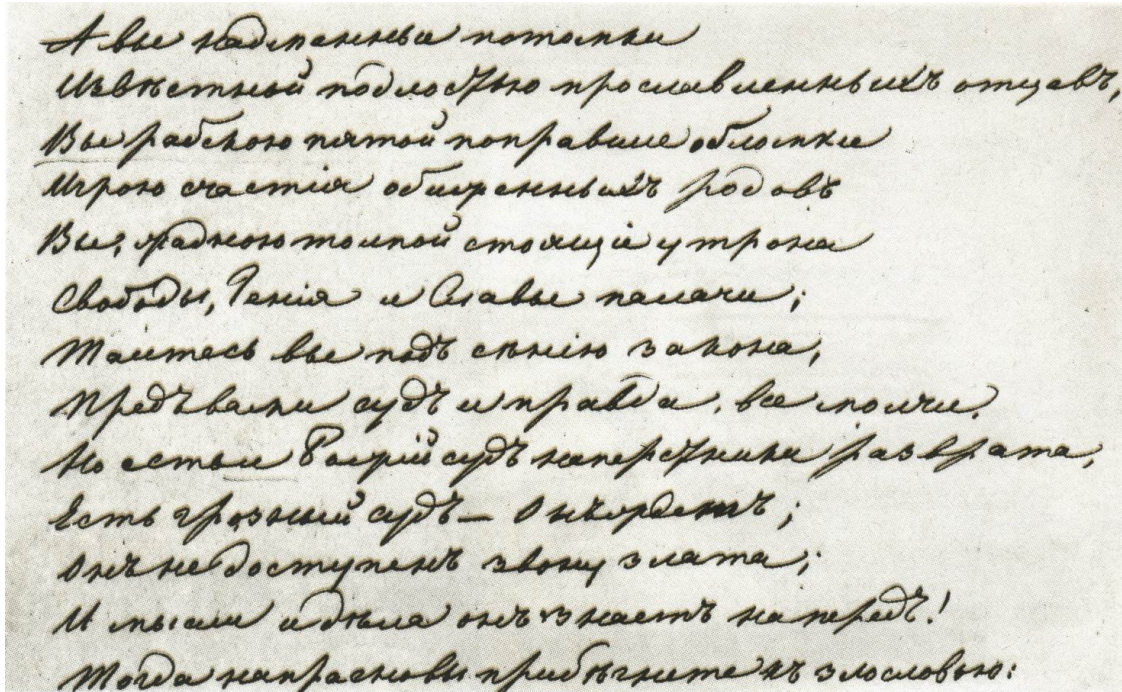 А вы надменные потомки
Извѣстной подлостью прославленныхъ отцовъ,
Вы рабскою пятой поправшие обломки
Игрою счастія обиженныхъ родовъ
Вы, жадною толпой стоящіе у трона
Свободы, Генія и Славы палачи;
Таитесь вы подъ сѣнію закона,
Предъ вами судъ и правда, все молчи.
Но есть и Божій судъ наперстники разврата,
Есть грозный судъ — Онъ ждетъ;
Онъ не доступенъ звону злата;
И мысли и дѣла онъ знаетъ напередъ!
Тогда напрасно вы прибѣгнете къ злословью: